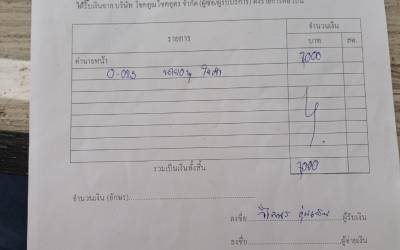 ได้รับเงินจาก บริษัท โชคคูณโชคอุดร จำกัด (ผู้ซื้อ/ผู้รับบริการ) ดังรายการต่อไปนี้
รายการ จำนวนเงิน
บาท สต.
ค่านายหน้า 7,000
รวมเป็นเงินทั้งสิ้น 7,000
จำนวนเงิน (อักษร)
ลงชื่อ ผู้รับเงิน
ลงชื่อ ผู้จ่ายเงิน